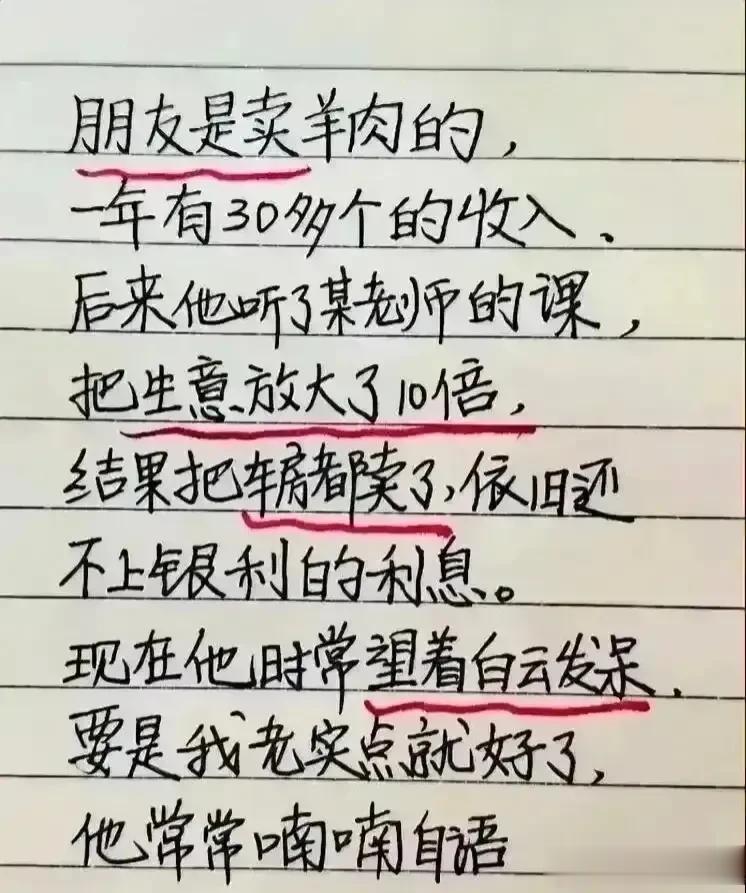 朋友是卖羊肉的，
一年有30多个的收入、
后来他听了某老师的课，
把生意放大了10倍，
结果把车房都卖了，依旧还
不上银利的利息。
现在他时常望着白云发呆、
要是我老实点就好了，
他常常喃喃自语